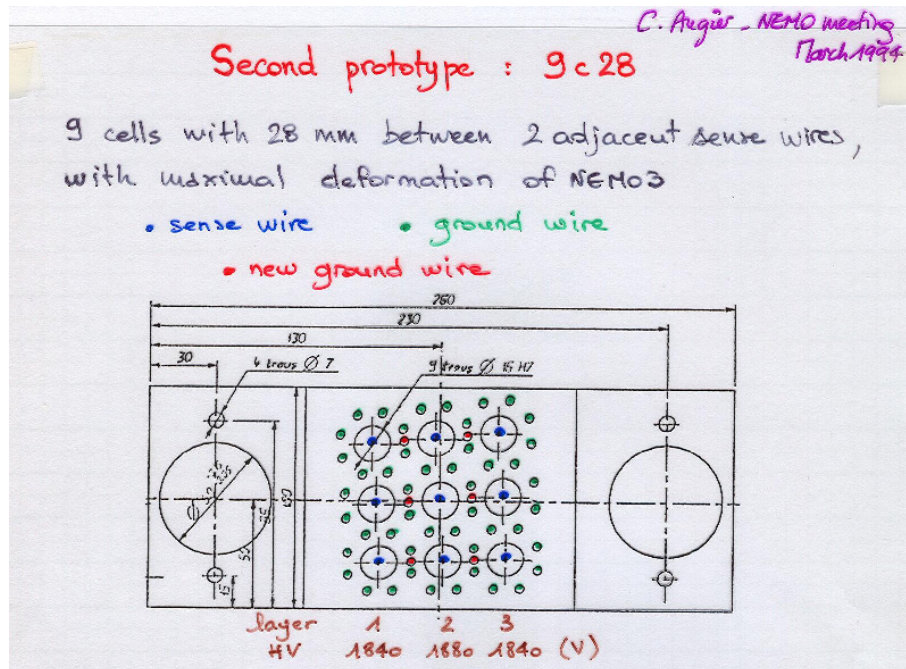 C. Augier - NEMO meeting
March 1994
Second prototype : 9c28
9 cells with 28 mm between 2 adjacent sense wires,
with maximal deformation of NEMO3
• sense wire • ground wire
• new ground wire
260
230
130
30
4 trous Ø 7
9 trous Ø 15 H7
50
85
100
15
layer 1 2 3
HV 1840 1880 1840 (V)